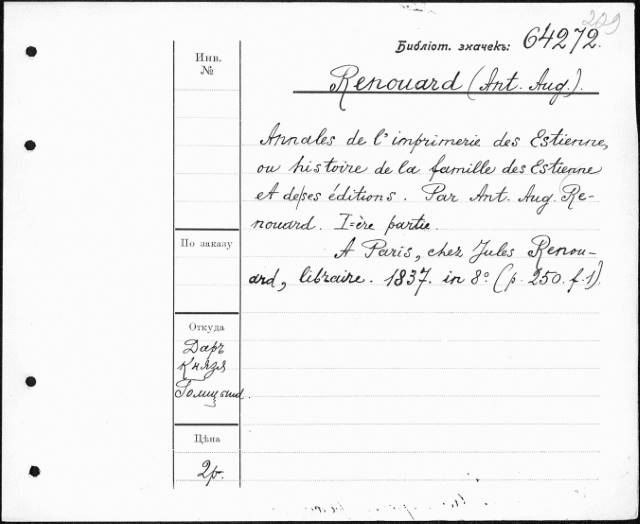 209
Библіот. значекъ: 64272.
Инв.
№
Renouard (Ant. Aug.).
Annales de l'imprimerie des Estienne,
ou histoire de la famille des Estienne
et de ses éditions. Par Ant. Aug. Re-
nouard. I=ère partie.
По заказу
A Paris, chez Jules Renou-
ard, libraire. 1837. in 8º (p. 250. f. 1).
Откуда
Даръ
Князя
Голицына.
Цѣна
2р.